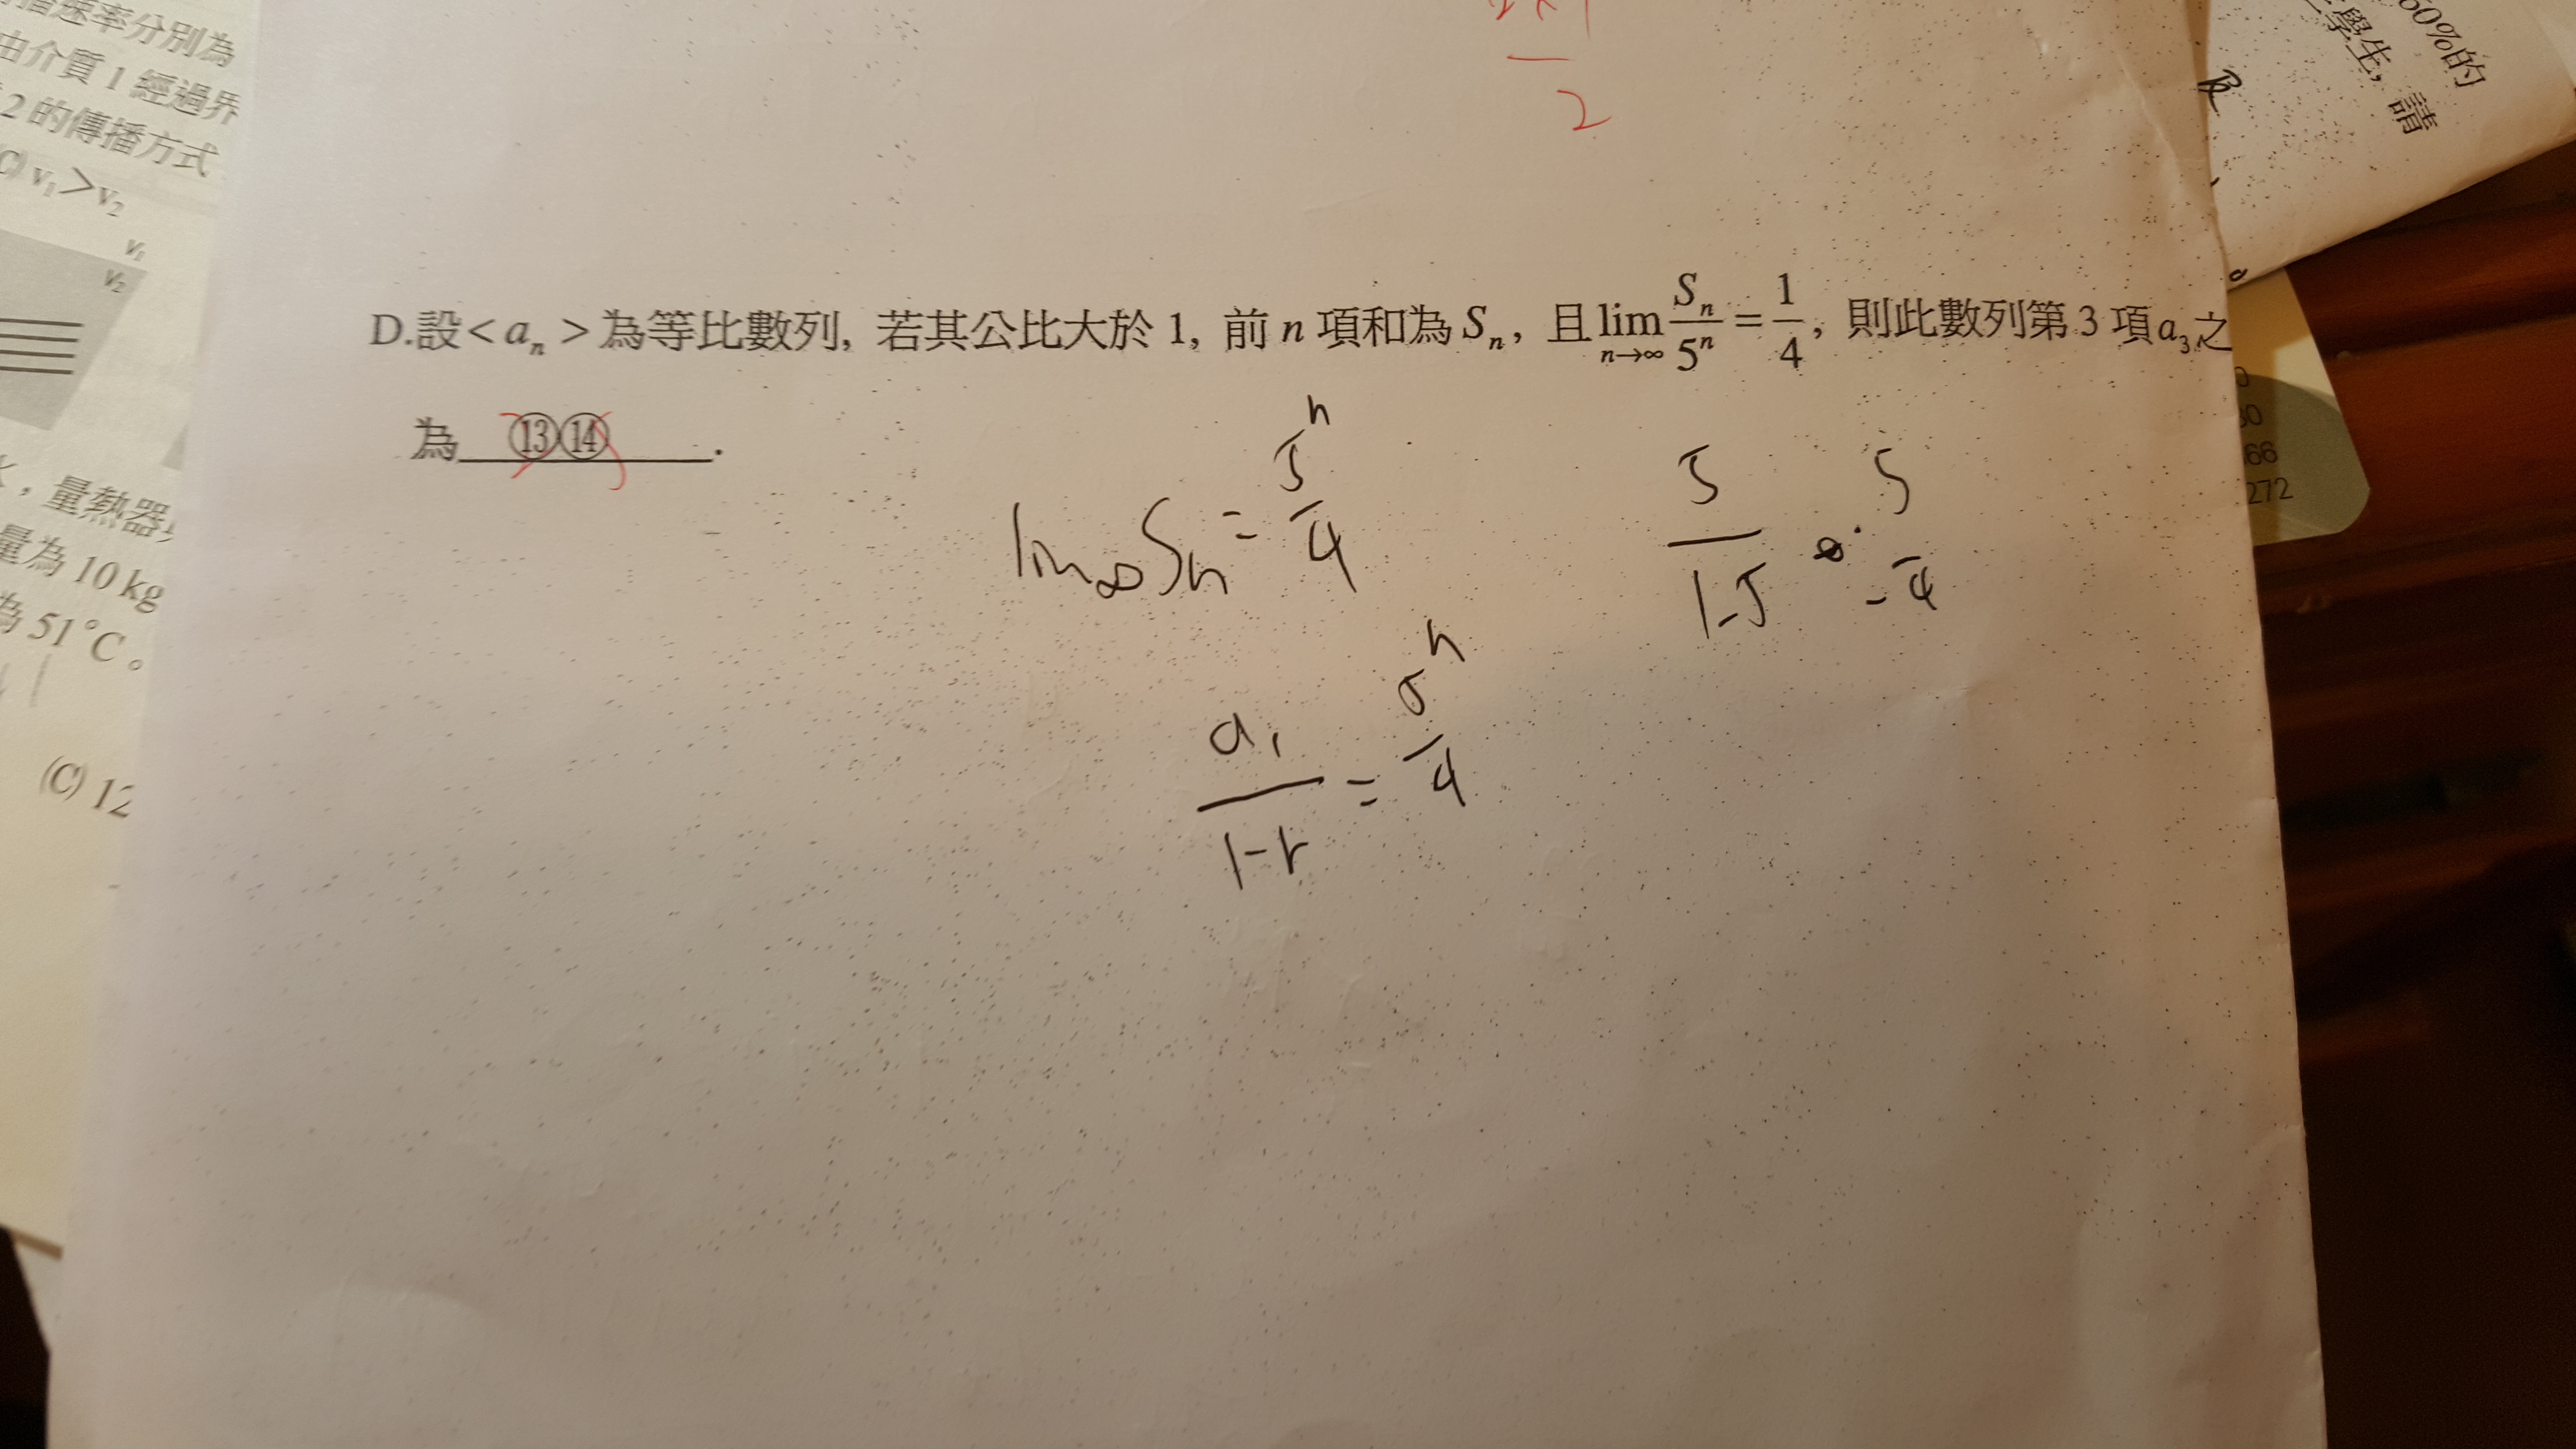 播速率分別為
由介質1經過界
2的傳播方式
(C) v₁>v₂
v₁
v₂
量熱器
量為10 kg
為51°C。
(C) 12
2
60%的
學生, 請
D.設<aₙ>為等比數列, 若其公比大於1, 前n項和為Sₙ, 且lim n→∞ Sₙ/5ⁿ = 1/4, 則此數列第3項a₃之
為 ⑬⑭ .
lim ∞ Sn = 5ⁿ/4
5/1-5 5/-4
a₁/1-r = 5ⁿ/4
66
272